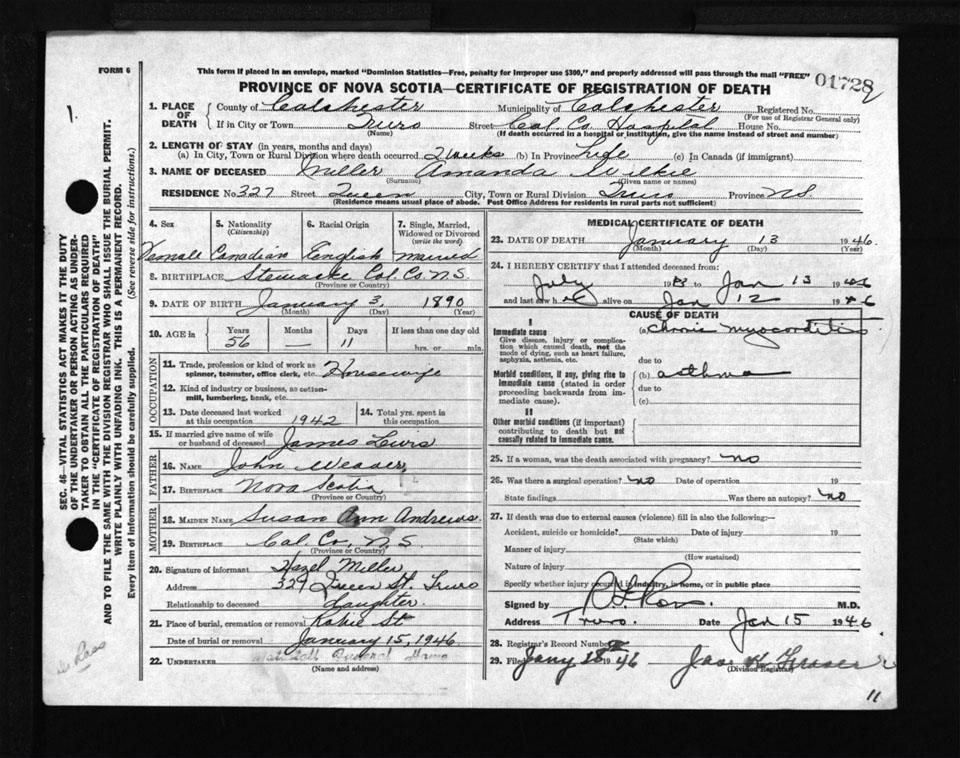 This form if placed in an envelope, marked "Dominion Statistics—Free, penalty for improper use $300," and properly addressed will pass through the mail "FREE"
FORM 6
01728
PROVINCE OF NOVA SCOTIA—CERTIFICATE OF REGISTRATION OF DEATH
1. PLACE OF DEATH
County of Colchester Municipality of Colchester Registered No.
(For use of Registrar General only)
If in City or Town Truro Street Col. Co. Hospital House No.
(Name) (If death occurred in a hospital or institution, give the name instead of street and number)
2. LENGTH OF STAY (in years, months and days)
(a) In City, Town or Rural Division where death occurred 2 weeks (b) In Province Life (c) In Canada (if immigrant)
3. NAME OF DECEASED Miller Amanda Wilkie
(Surname) (Given name or names)
RESIDENCE No. 327 Street Queen City, Town or Rural Division Truro Province N.S.
(Residence means usual place of abode. Post Office Address for residents in rural parts not sufficient)
4. Sex 5. Nationality (Citizenship) 6. Racial Origin 7. Single, Married, Widowed or Divorced (write the word)
Female Canadian English Married
8. BIRTHPLACE Stewiacke Col. Co. N.S.
(Province or Country)
9. DATE OF BIRTH January 3, 1890
(Month) (Day) (Year)
10. AGE in Years Months Days If less than one day old
56 — 11 hrs. or min.
OCCUPATION
11. Trade, profession or kind of work as spinner, teamster, office clerk, etc. Housewife
12. Kind of industry or business, as cotton-mill, lumbering, bank, etc.
13. Date deceased last worked at this occupation 1942 14. Total yrs. spent in this occupation
15. If married give name of wife or husband of deceased James Lewis
FATHER
16. NAME John Weaver
17. BIRTHPLACE Nova Scotia
(Province or Country)
MOTHER
18. MAIDEN NAME Susan Ann Andrews
19. BIRTHPLACE Col. Co. N.S.
(Province or Country)
20. Signature of informant Hazel Miller
Address 327 Queen St. Truro
Relationship to deceased daughter.
21. Place of burial, cremation or removal Robie St
Date of burial or removal January 15, 1946
22. UNDERTAKER Funeral Home
(Name and address)
MEDICAL CERTIFICATE OF DEATH
23. DATE OF DEATH January 13 1946.
(Month) (Day) (Year)
24. I HEREBY CERTIFY that I attended deceased from:
July 19 to Jan 13 1946
and last saw h alive on Jan 12 1946
CAUSE OF DEATH
I
Immediate cause (a) Chronic myocarditis
Give disease, injury or complication which caused death, not the mode of dying, such as heart failure, asphyxia, asthenia, etc.
due to
Morbid conditions, if any, giving rise to immediate cause (stated in order proceeding backwards from immediate cause). (b) asthma
due to
(c)
II
Other morbid conditions (if important) contributing to death but not causally related to immediate cause.
25. If a woman, was the death associated with pregnancy? no
26. Was there a surgical operation? no Date of operation 19
State findings Was there an autopsy? no
27. If death was due to external causes (violence) fill in also the following:
Accident, suicide or homicide? Date of injury 19
(State which)
Manner of injury
(How sustained)
Nature of injury
Specify whether injury occurred in industry, in home, or in public place
Signed by Ross M.D.
Address Truro Date Jan 15 1946
28. Registrar's Record Number
29. Filed Jany 18 1946 Jas. K. Fraser
(Division Registrar)
11
SEC. 46—VITAL STATISTICS ACT MAKES IT THE DUTY
OF THE UNDERTAKER OR PERSON ACTING AS UNDER-
TAKER TO OBTAIN ALL THE PARTICULARS REQUIRED
IN THE "CERTIFICATE OF REGISTRATION OF DEATH"
AND TO FILE THE SAME WITH THE DIVISION REGISTRAR WHO SHALL ISSUE THE BURIAL PERMIT.
WRITE PLAINLY WITH UNFADING INK. THIS IS A PERMANENT RECORD.
Every item of information should be carefully supplied. (See reverse side for instructions.)
Dr Ross